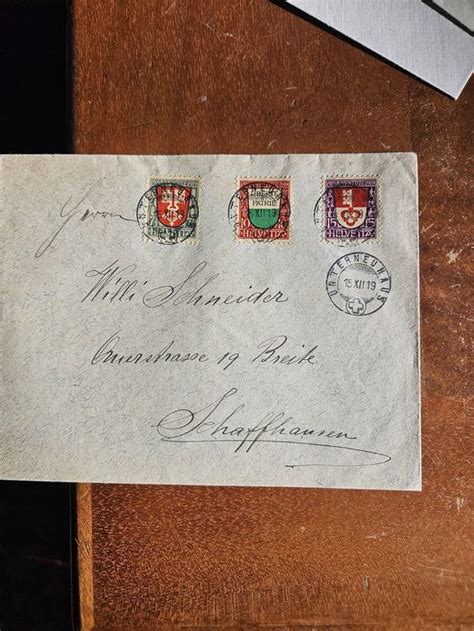 HELVETIA
10
LIBERTÉ
PATRIE
10
HELVETIA
15
15
HELVETIA
UNTERNEUHAUS
15 XII 19
Herrn
Willi Schneider
Querstrasse 19 Breite
Schaffhausen